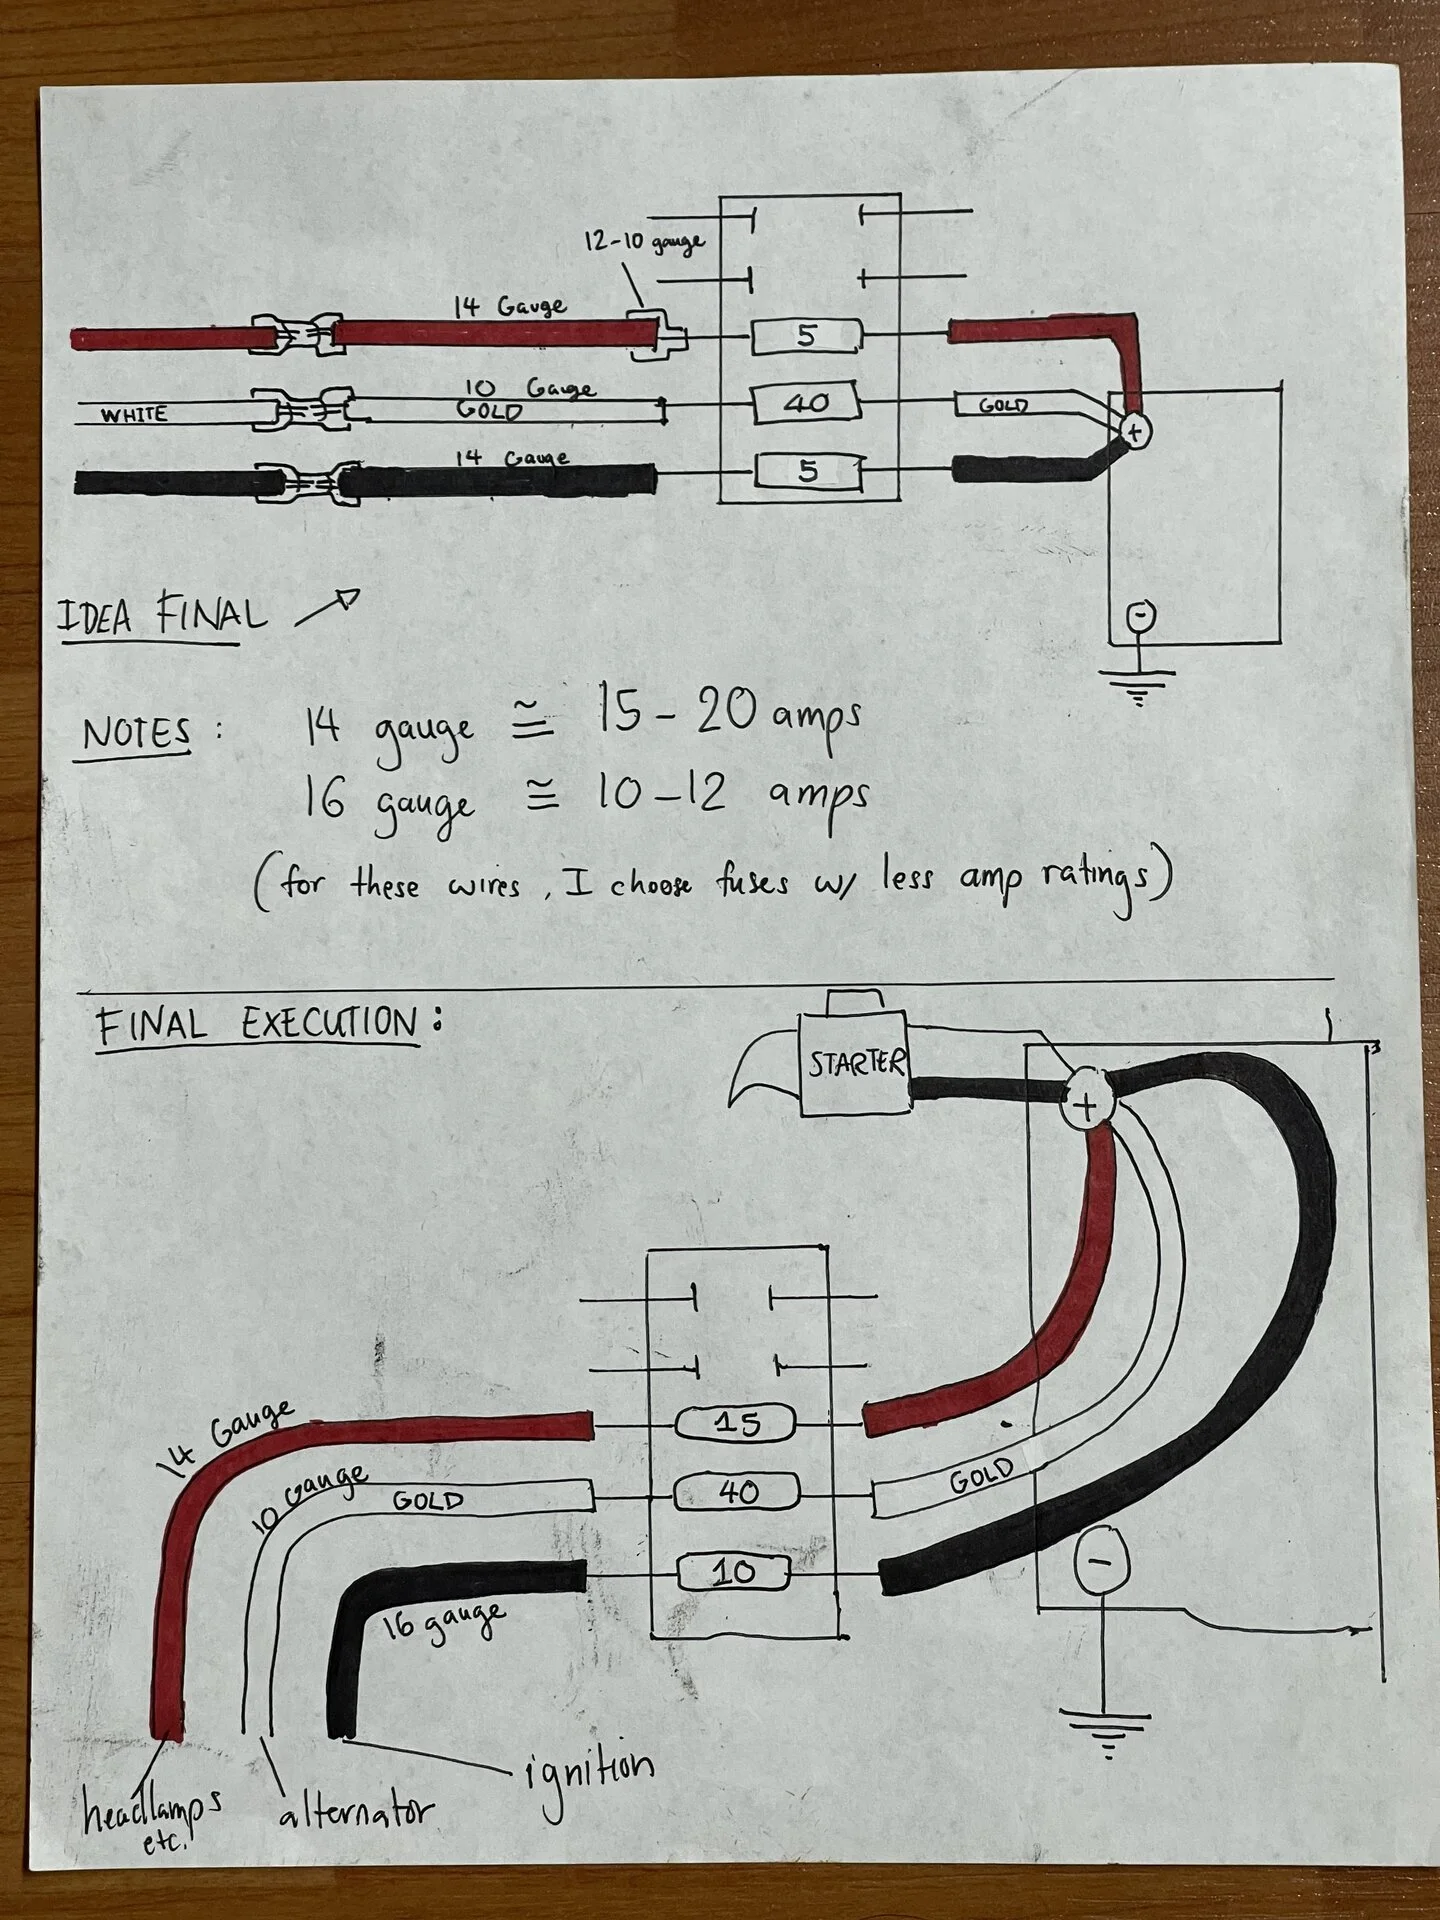 12-10 gauge
14 Gauge
5
10 Gauge
WHITE
GOLD
40
GOLD
+
14 Gauge
5
-
IDEA FINAL
NOTES : 14 gauge ≅ 15-20 amps
16 gauge ≅ 10-12 amps
(for these wires, I choose fuses w/ less amp ratings)
FINAL EXECUTION:
STARTER
+
14 Gauge
15
10 Gauge
GOLD
40
GOLD
10
-
16 gauge
ignition
headlamps
etc.
alternator